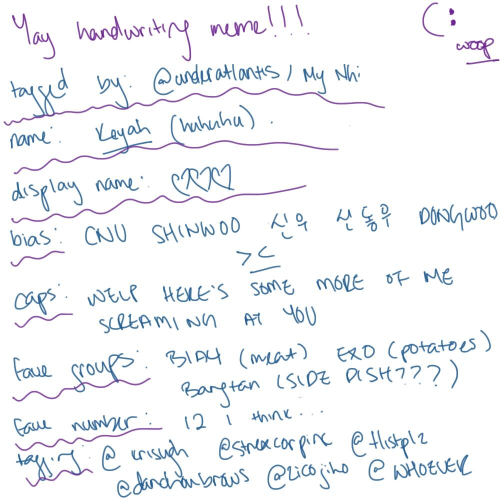 Yay handwriting meme!!! (:
woop
tagged by: @underatlantis / My Nhi
name: Keyah (huhuhu).
display name: ♡♡♡♡
bias: CNU SHINWOO 신우 신동우 DONGWOO
><
caps: WELP HERE'S SOME MORE OF ME
SCREAMING AT YOU
fave groups: B1A4 (meat) EXO (potatoes)
Bangtan (SIDE DISH???)
fave number: 12 i think...
tagging: @krisugh @strexcorpinc @flistplz
@danchanbraus @zicojiho @WHOEVER